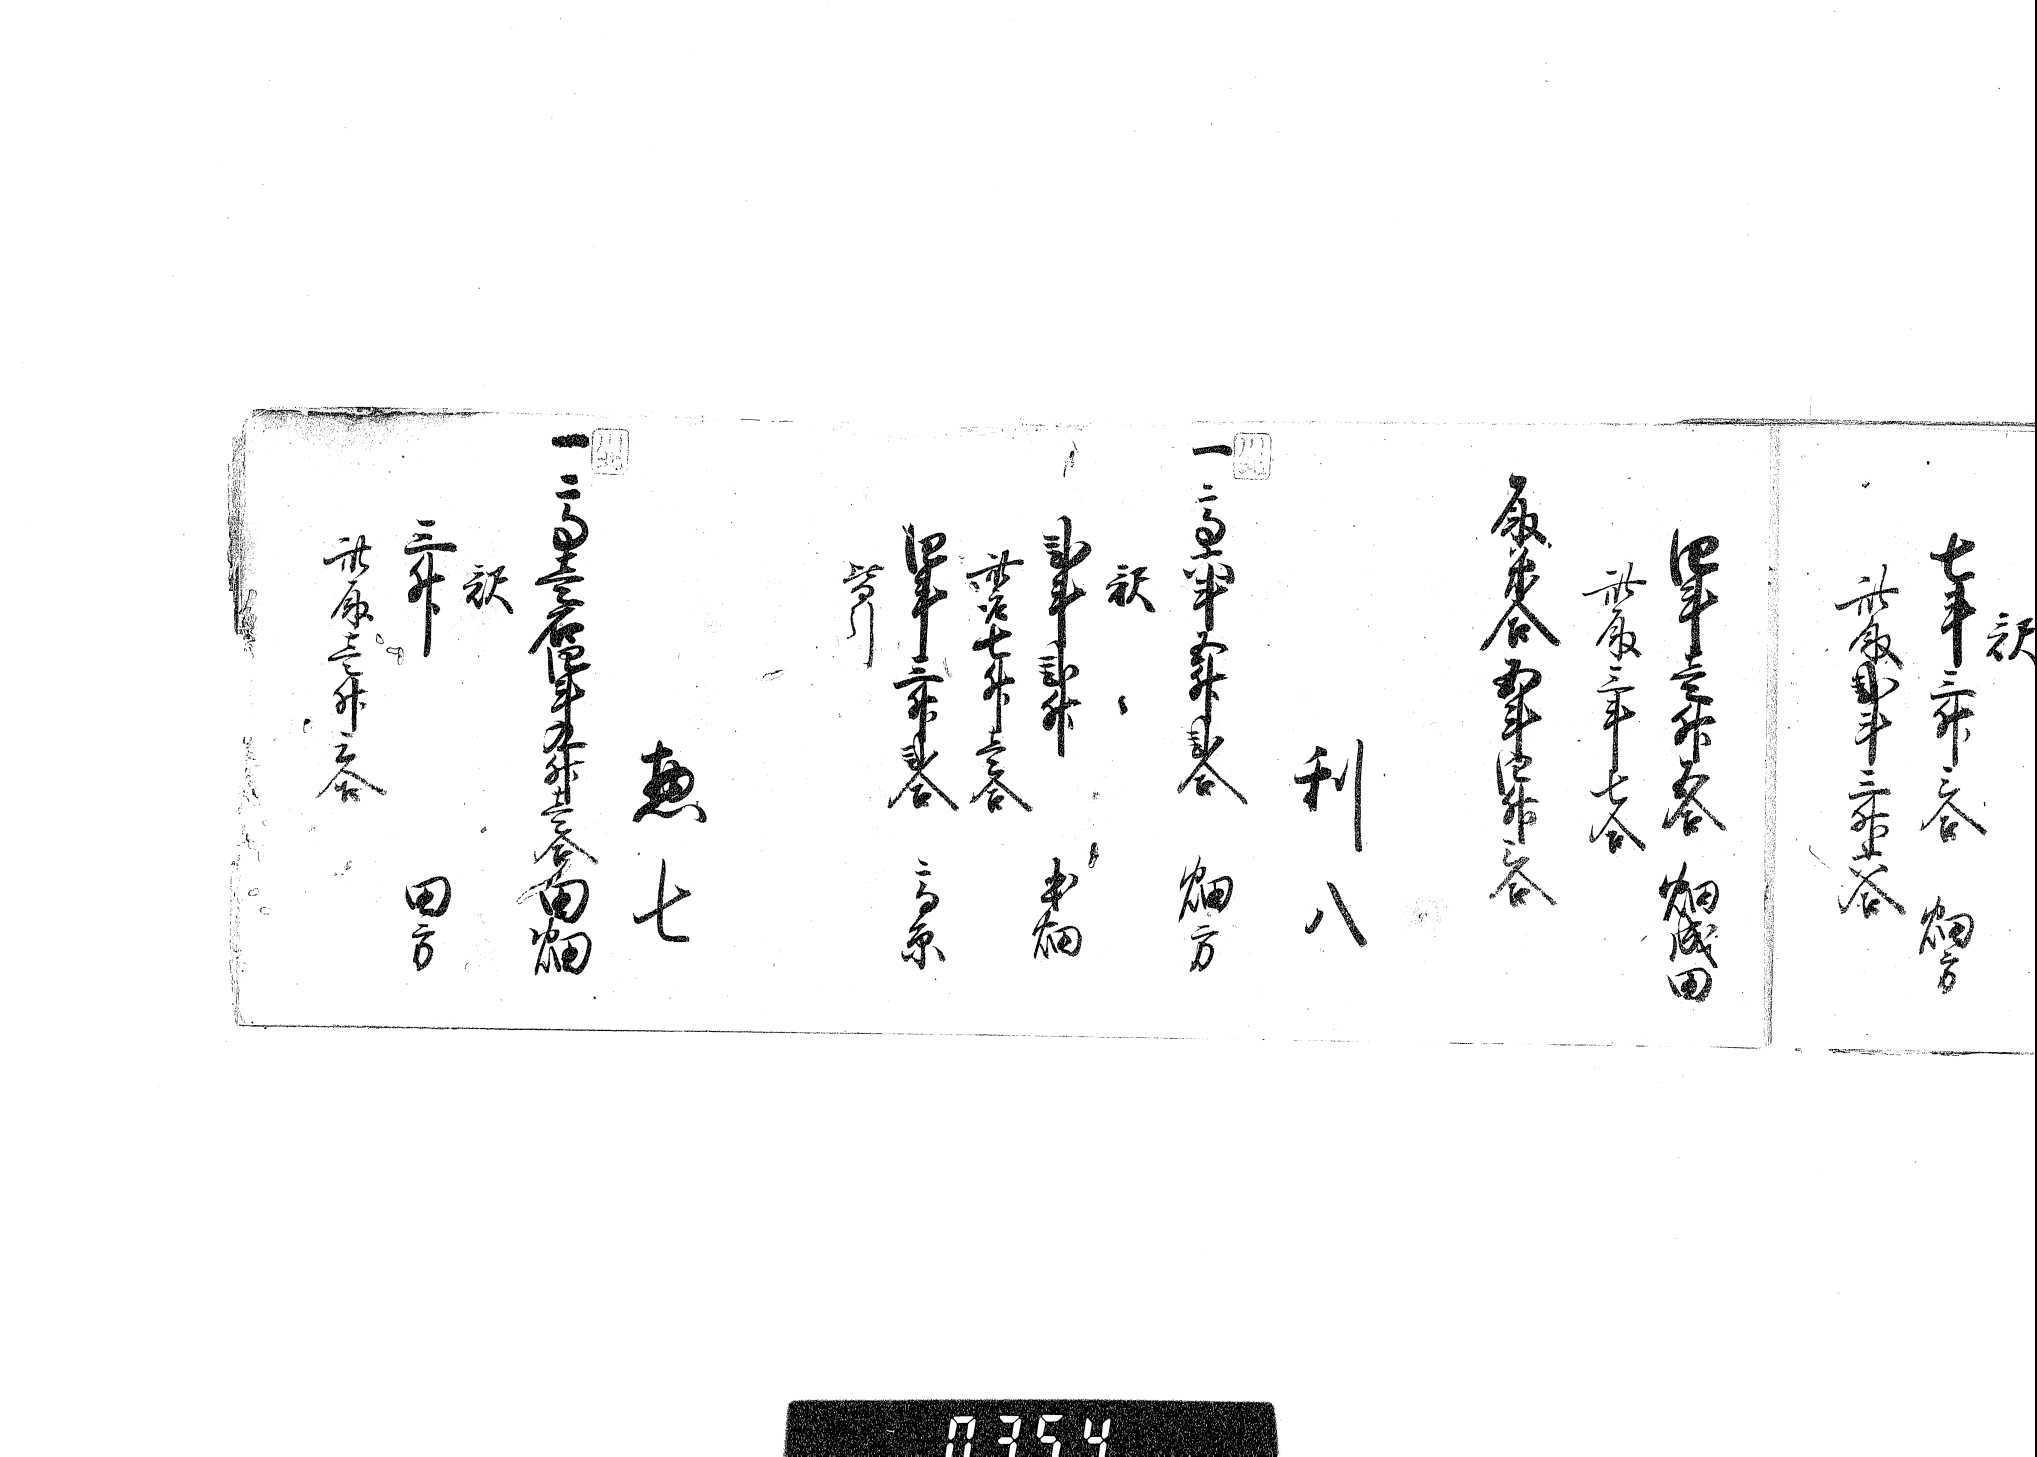 訳
七斗三升三合 畑方
此取弐斗三升六合
四斗壱升五合 畑成田
此取三斗七合
取米合五斗四升三合
利八
一 高六斗五升弐合 畑方
訳
弐斗弐升 中畑
此取七升壱合
四斗三升弐合 高京
皆引
惣七
一 高壱石四斗九升壱合 田畑
訳
三升 田方
此取壱升三合
0354